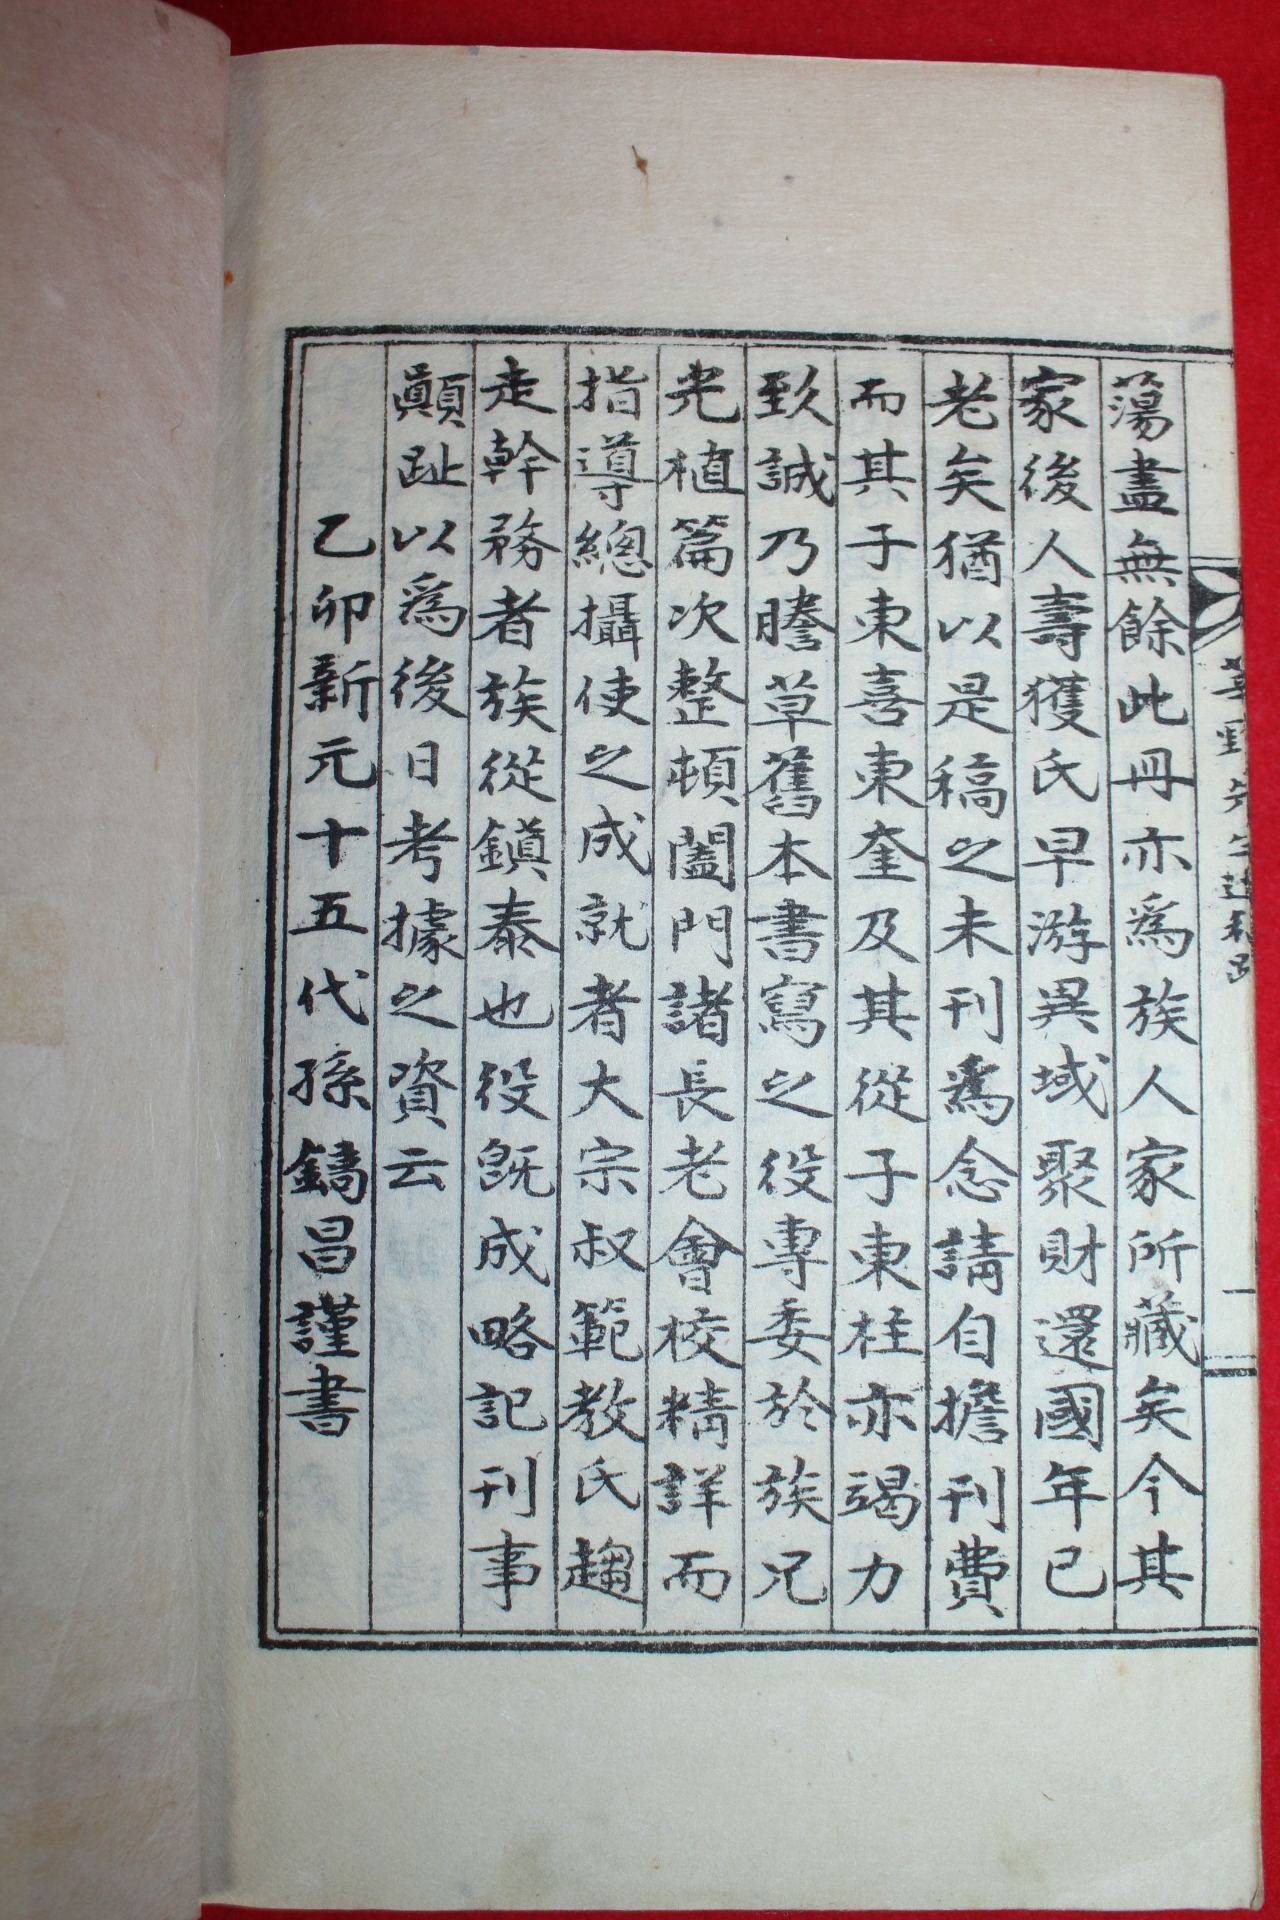 蕩盡無餘此冊亦爲族人家所藏矣今其
家後人壽獲氏早游異域聚財還國年已
老矣猶以是稿之未刊爲念請自擔刊費
而其子東喜東奎及其從子東柱亦竭力
致誠乃謄草舊本書寫之役專委於族兄
光植篇次整頓闔門諸長老會校精詳而
指導總攝使之成就者大宗叔範教氏趨
走幹務者族從鎭泰也役旣成略記刊事
顚趾以爲後日考據之資云
乙卯新元十五代孫鎬昌謹書
先生逸稿跋
一